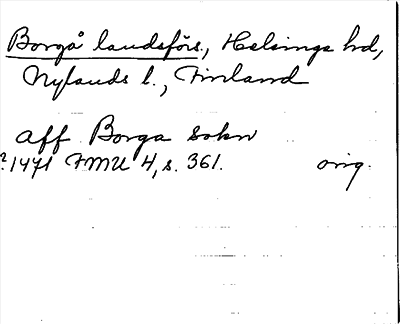 Borgå landsförs., Helsinge hd,
Nylands l., Finland
aff Borga sokn
?1471 FMU 4, s. 361. orig.